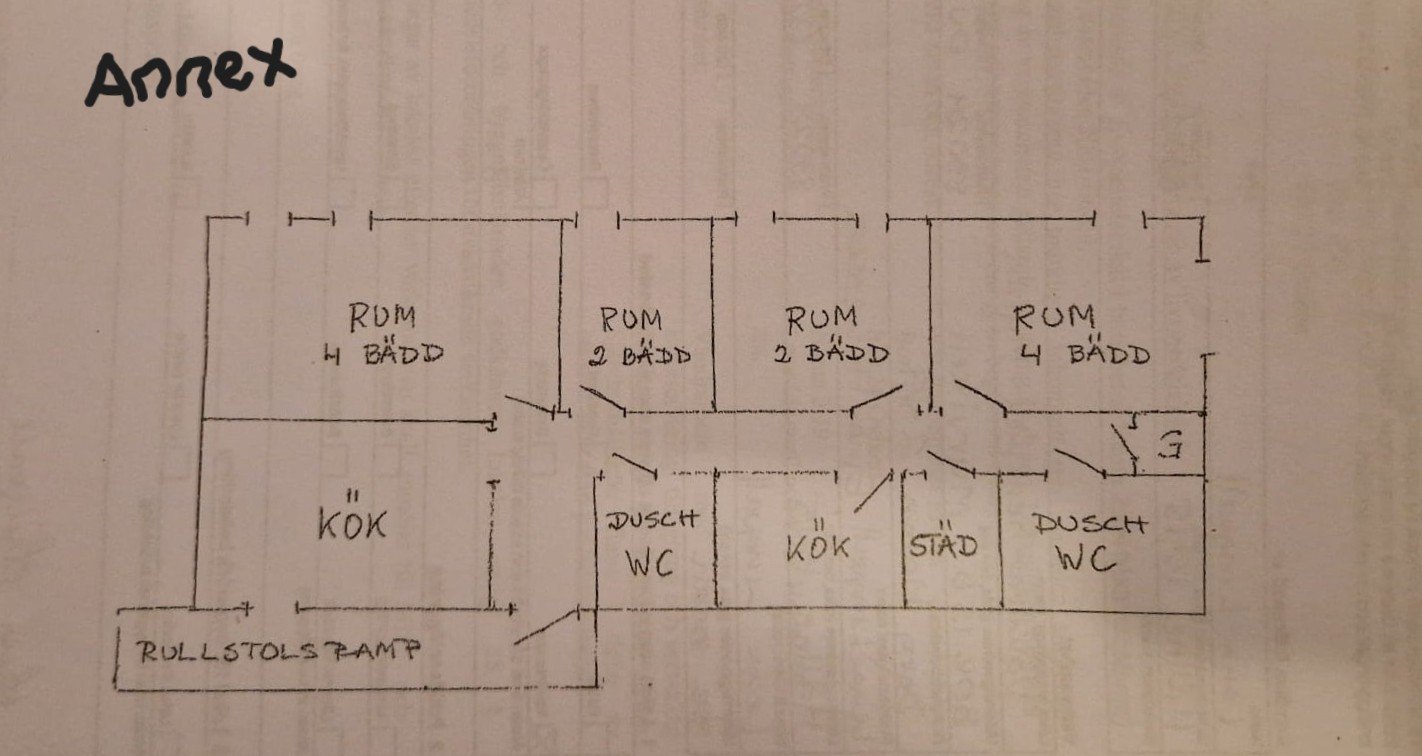 Annex
RUM
4 BÄDD
RUM
2 BÄDD
RUM
2 BÄDD
RUM
4 BÄDD
G
KÖK
DUSCH
WC
KÖK
STÄD
DUSCH
WC
RULLSTOLSRAMP